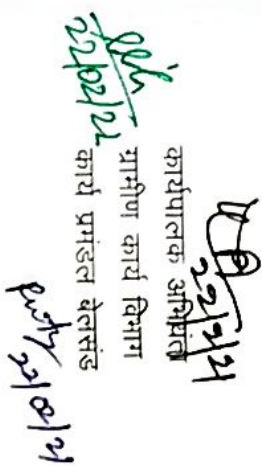 22/2/21
कार्यपालक अभियंता
ग्रामीण कार्य विभाग
कार्य प्रमंडल बेलसंड
22/02/21
22/02/21